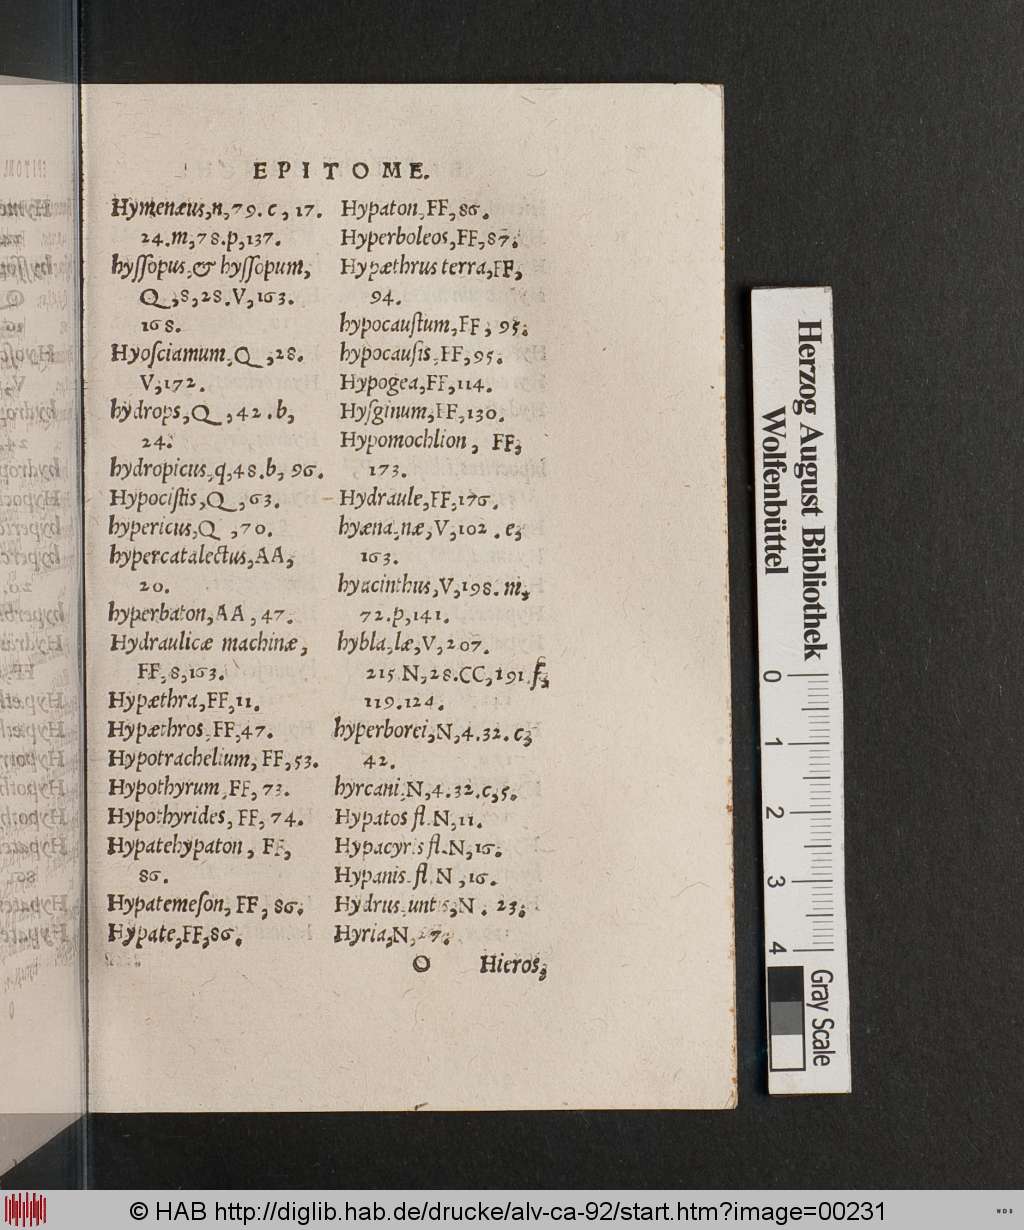 EPITOME.
Hymenæus,n,79.c,17.
24.m,78.p,137.
hyſſopus,& hyſſopum,
Q,8,28.V,163.
168.
Hyoſciamum,Q,28.
V,172.
hydrops,Q,42.b,
24.
hydropicus,q,48.b,96.
Hypociſtis,Q,63.
hypericus,Q,70.
hypercatalectus,AA,
20.
hyperbaton,AA,47.
Hydraulicæ machinæ,
FF,8,163.
Hypæthra,FF,11.
Hypæthros,FF,47.
Hypotrachelium,FF,53.
Hypothyrum,FF,73.
Hypothyrides,FF,74.
Hypatehypaton, FF,
86.
Hypatemeſon,FF,86.
Hypate,FF,86.
Hypaton,FF,86.
Hyperboleos,FF,87.
Hypæthrus terra,FF,
94.
hypocauſtum,FF,95.
hypocauſis,FF,95.
Hypogea,FF,114.
Hyſginum,FF,130.
Hypomochlion, FF,
173.
Hydraule,FF,176.
hyæna,næ,V,102.e,
163.
hyacinthus,V,198.m,
72.p,141.
hybla,læ,V,207.
215.N,28.CC,191.f,
119.124.
hyperborei,N,4.32.c,
42.
hyrcani,N,4.32.c,5.
Hypatos fl.N,11.
Hypacyris fl.N,16.
Hypanis fl.N,16.
Hydrus,untis,N.23.
Hyria,N,27.
O Hieros,
Herzog August Bibliothek
Wolfenbüttel
0 1 2 3 4
Gray Scale
© HAB http://diglib.hab.de/drucke/alv-ca-92/start.htm?image=00231